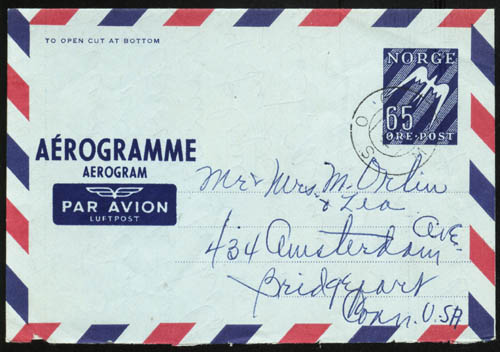 TO OPEN CUT AT BOTTOM
NORGE
65
ØRE·POST
AÉROGRAMME
AEROGRAM
PAR AVION
LUFTPOST
Mr & Mrs. M. Orlin
& Lea
434 Amsterdam Ave.
Bridgeport
Conn. U.S.A